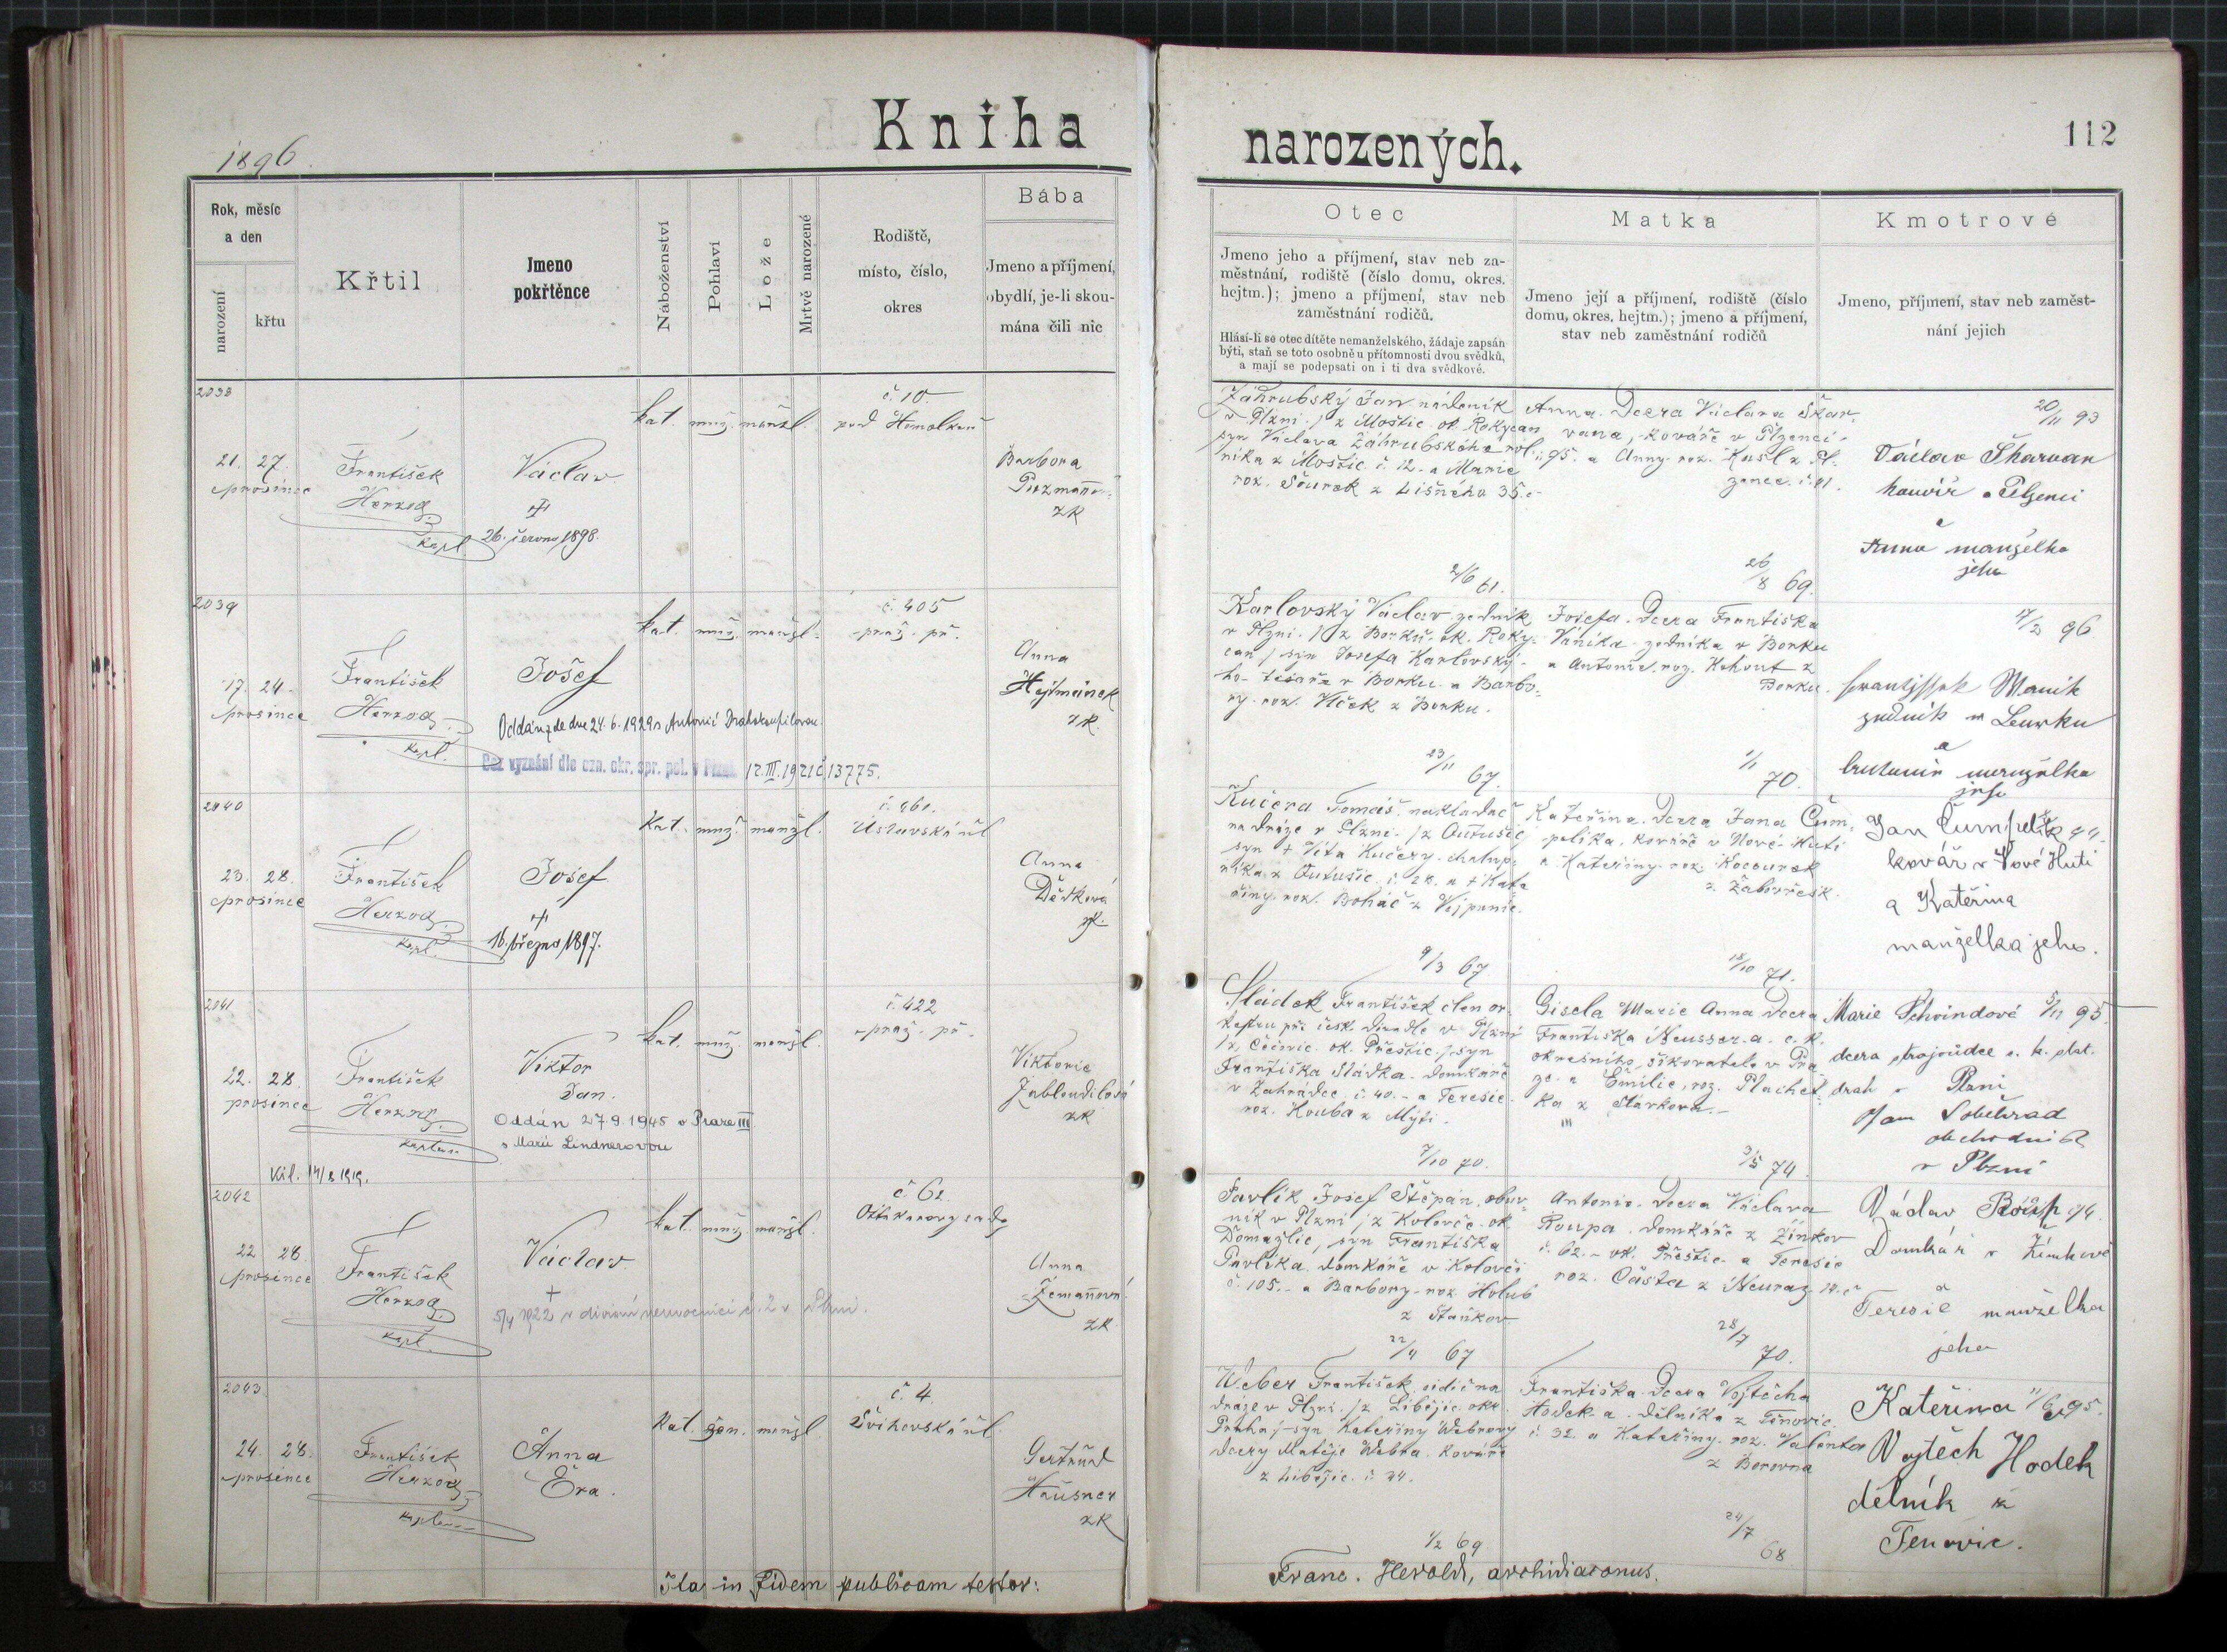 1896.
Kniha
narozených.
112
Rok, měsíc
a den
narození
křtu
Křtil
Jmeno
pokřtěnce
Náboženství
Pohlaví
Lože
Mrtvě narozené
Rodiště,
místo, číslo,
okres
Bába
Jmeno a příjmení,
obydlí, je-li skou-
mána čili nic
Otec
Jmeno jeho a příjmení, stav neb za-
městnání, rodiště (číslo domu, okres.
hejtm.); jmeno a příjmení, stav neb
zaměstnání rodičů.
Hlásí-li se otec dítěte nemanželského, žádaje zapsán
býti, staň se toto osobně u přítomnosti dvou svědků,
a mají se podepsati on i ti dva svědkové.
Matka
Jmeno její a příjmení, rodiště (číslo
domu, okres. hejtm.); jmeno a příjmení,
stav neb zaměstnání rodičů
Kmotrové
Jmeno, příjmení, stav neb zaměst-
nání jejich
2038
21. 27.
prosince
František
Herzog
kapl.
Václav
26. června 1898.
kat. muž. manžl.
č. 10.
pod Homolkou
Barbora
zk
Záhrubský Jan nádeník
v Plzni / z Moštic ok. Rokycan
syn Václava Záhrubského rol-
níka z Moštic č. 12. a Marie
roz. Šourek z Lišného 35.
2/6 61.
Anna. Dcera Václava Škar-
vana, kováře v Plzenci
č. 95. a Anny roz. Kusl z Pl-
zence č. 11.
26/8 69.
20/11 93
Václav Škarvan
kovář v Plzenci
a
Anna manželka
jeho
2039
17. 24.
prosince
František
Herzog
kapl.
Josef
Oddán zde dne 24. 6. 1929 s Antonií
Bez vyznání dle ozn. okr. spr. pol. v Plzni 12. III. 1921 č. 13775.
kat. muž. manžl.
č. 405
praž. př.
Anna
Hejtmánek
zk.
Karlovský Václav zedník
v Plzni / z Borku ok. Roky-
can / syn Josefa Karlovské-
ho tesaře v Borku a Barbo-
ry roz. Vlček z Borku.
23/11 67.
Josefa. Dcera Františka
Vaníka zedníka v Borku
a Antonie roz. Kohout z
Borku.
1/1 70.
17/2 96
Maník
zedník
a
manželka
2040
23. 28.
prosince
František
Herzog
kapl.
Josef
16. března 1897.
kat. muž. manžl.
č. 461.
Úslavská ul.
Anna
Dědková
zk.
Kučera Tomáš nakladač
na dráze v Plzni
syn + Víta Kučery chalup-
níka z č. 28. a + Kate-
řiny roz. Boháč z
9/3 67
Kateřina. Dcera Jana Čum-
pelíka, kováře v Nové Huti
a Kateřiny roz. Kocourek
18/10 71.
Jan Čumpelík 94.
kovář v Nové Huti
a Kateřina
manželka jeho.
2041
22. 28.
prosince
František
Herzog
kaplan
Viktor
Jan.
Oddán 27.9.1945 v Praze III
s Marií Lindnerovou
kat. muž. manžl.
č. 422
praž. př.
Viktorie
Zabloudilová
zk
Sládek František člen or-
kestru při česk. divadle v Plzni
/ z Čečovic ok. Přeštic / syn
Františka Sládka domkáře
v Zahrádce, č. 40. a Terezie
roz. Houba z Mýti.
7/10 70.
Gisela Marie Anna dcera
Františka Neusser-a c. k.
okresního šikovatele v Pra-
ze a Emilie, roz. Plachet-
ka z Stárkova.
3/5 74.
Marie Schvindová 5/11 95.
dcera strojvůdce c. k. stát.
drah v Plzni
Jan Soběhrad
obchodník
v Plzni
Kil. 14/8 1919.
2042
22 28.
prosince
František
Herzog
kapl.
Václav
+
5/4 1922 v divisní nemocnici č. 2 v Plzni.
kat. muž. manžl.
č. 62.
Otakarovy sady
Anna
Zemanová
zk
Pavlík Josef Štěpán, obuv-
ník v Plzni / z Kolovče ok.
Domažlic, syn Františka
Pavlíka domkáře v Kolovči
č. 105. a Barbory roz. Holub
z Staňkov
22/4 67
Antonie. Dcera Václava
Roupa. domkáře z Žinkov
č. 62. ok. Přeštic a Terezie
roz. Částa z Neuraz
28/7 70.
Václav Roup 94.
Domkář v Žinkově
a
Terezie manželka
jeho
2043
24. 28.
prosince
František
Herzog
kaplan
Anna
Eva.
kat. žen. manžl
č. 4.
Zvíkovská ul.
Gertrud
Häusner
zk
Weber František, sidič na
dráze v Plzni / z Libějic okr.
Prahaj syn Kateřiny Webrovy
dcery Matěje Webra, kováře
z Libějic č. 24.
1/2 69
Františka dcera Vojtěcha
Hodek-a. dělníka z Těnovic
č. 32. a Kateřiny roz. Valenta
z Borovna
24/7 68
Kateřina 11/6 95.
Vojtěch Hodek
dělník z
Tenovic.
Ita in fidem publicam testor:
Franc. Herold, archidiaconus.